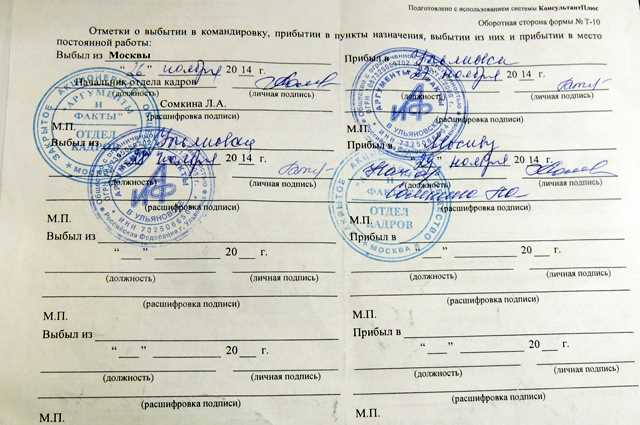 Подготовлено с использованием системы КонсультантПлюс
Оборотная сторона формы № Т-10
Отметки о выбытии в командировку, прибытии в пункты назначения, выбытии из них и прибытии в место
постоянной работы:
Выбыл из Москвы Прибыл в Ульяновск
“26” ноября 2014 г. “27” ноября 2014 г.
Начальник отдела кадров
(должность) (личная подпись) (должность) (личная подпись)
Сомкина Л.А.
(расшифровка подписи) (расшифровка подписи)
М.П. М.П.
Выбыл из Ульяновска Прибыл в Москву
ноября 2014 г. “29” ноября 2014 г.
(должность) (личная подпись) (должность) (личная подпись)
Сомкина
(расшифровка подписи) (расшифровка подписи)
М.П. М.П.
Выбыл из Прибыл в
“ ” 20 г. “ ” 20 г.
(должность) (личная подпись) (должность) (личная подпись)
(расшифровка подписи) (расшифровка подписи)
М.П. М.П.
Выбыл из Прибыл в
“ ” 20 г. “ ” 20 г.
(должность) (личная подпись) (должность) (личная подпись)
(расшифровка подписи) (расшифровка подписи)
М.П. М.П.
ЗАКРЫТОЕ АКЦИОНЕРНОЕ ОБЩЕСТВО
"АРГУМЕНТЫ
И
ФАКТЫ"
ОТДЕЛ
КАДРОВ
МОСКВА
АРГУМЕНТЫ И ФАКТЫ
АиФ
В УЛЬЯНОВСКЕ
АиФ
В УЛЬЯНОВСКЕ
ФАКТЫ"
ОТДЕЛ
КАДРОВ
МОСКВА